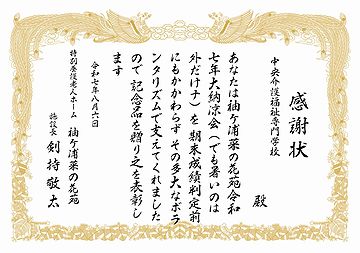 感謝状
中央介護福祉専門学校
殿
あなたは袖ケ浦菜の花苑令和
七年大納涼会（でも暑いのは
外だけナ）を期末成績判定前
にもかかわらずその多大なボラ
ンタリズムで支えてくれました
ので記念品を贈り之を表彰し
ます
令和七年八月六日
特別養護老人ホーム 袖ケ浦菜の花苑
施設長 剣持敬太